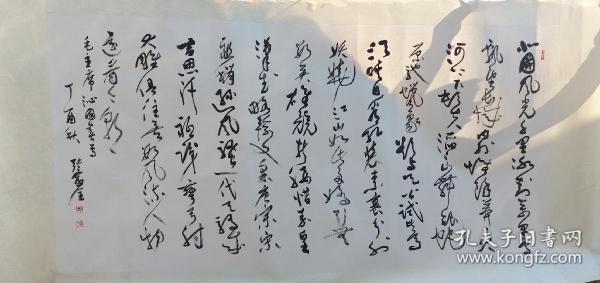 北國風光千里冰封万里雪
飘望长城内外惟余莽莽大
河上下顿失滔滔山舞银蛇
原驰蜡象欲与天公试比高
须晴日看红装素裹分外
妖娆江山如此多娇引无
数英雄竞折腰惜秦皇
汉武略输文采唐宗宋
祖稍逊风骚一代天骄成
吉思汗只识弯弓射
大雕俱往矣数风流人物
还看今朝
毛主席沁园春雪
丁酉秋
孔夫子旧书网
www.kongfz.com